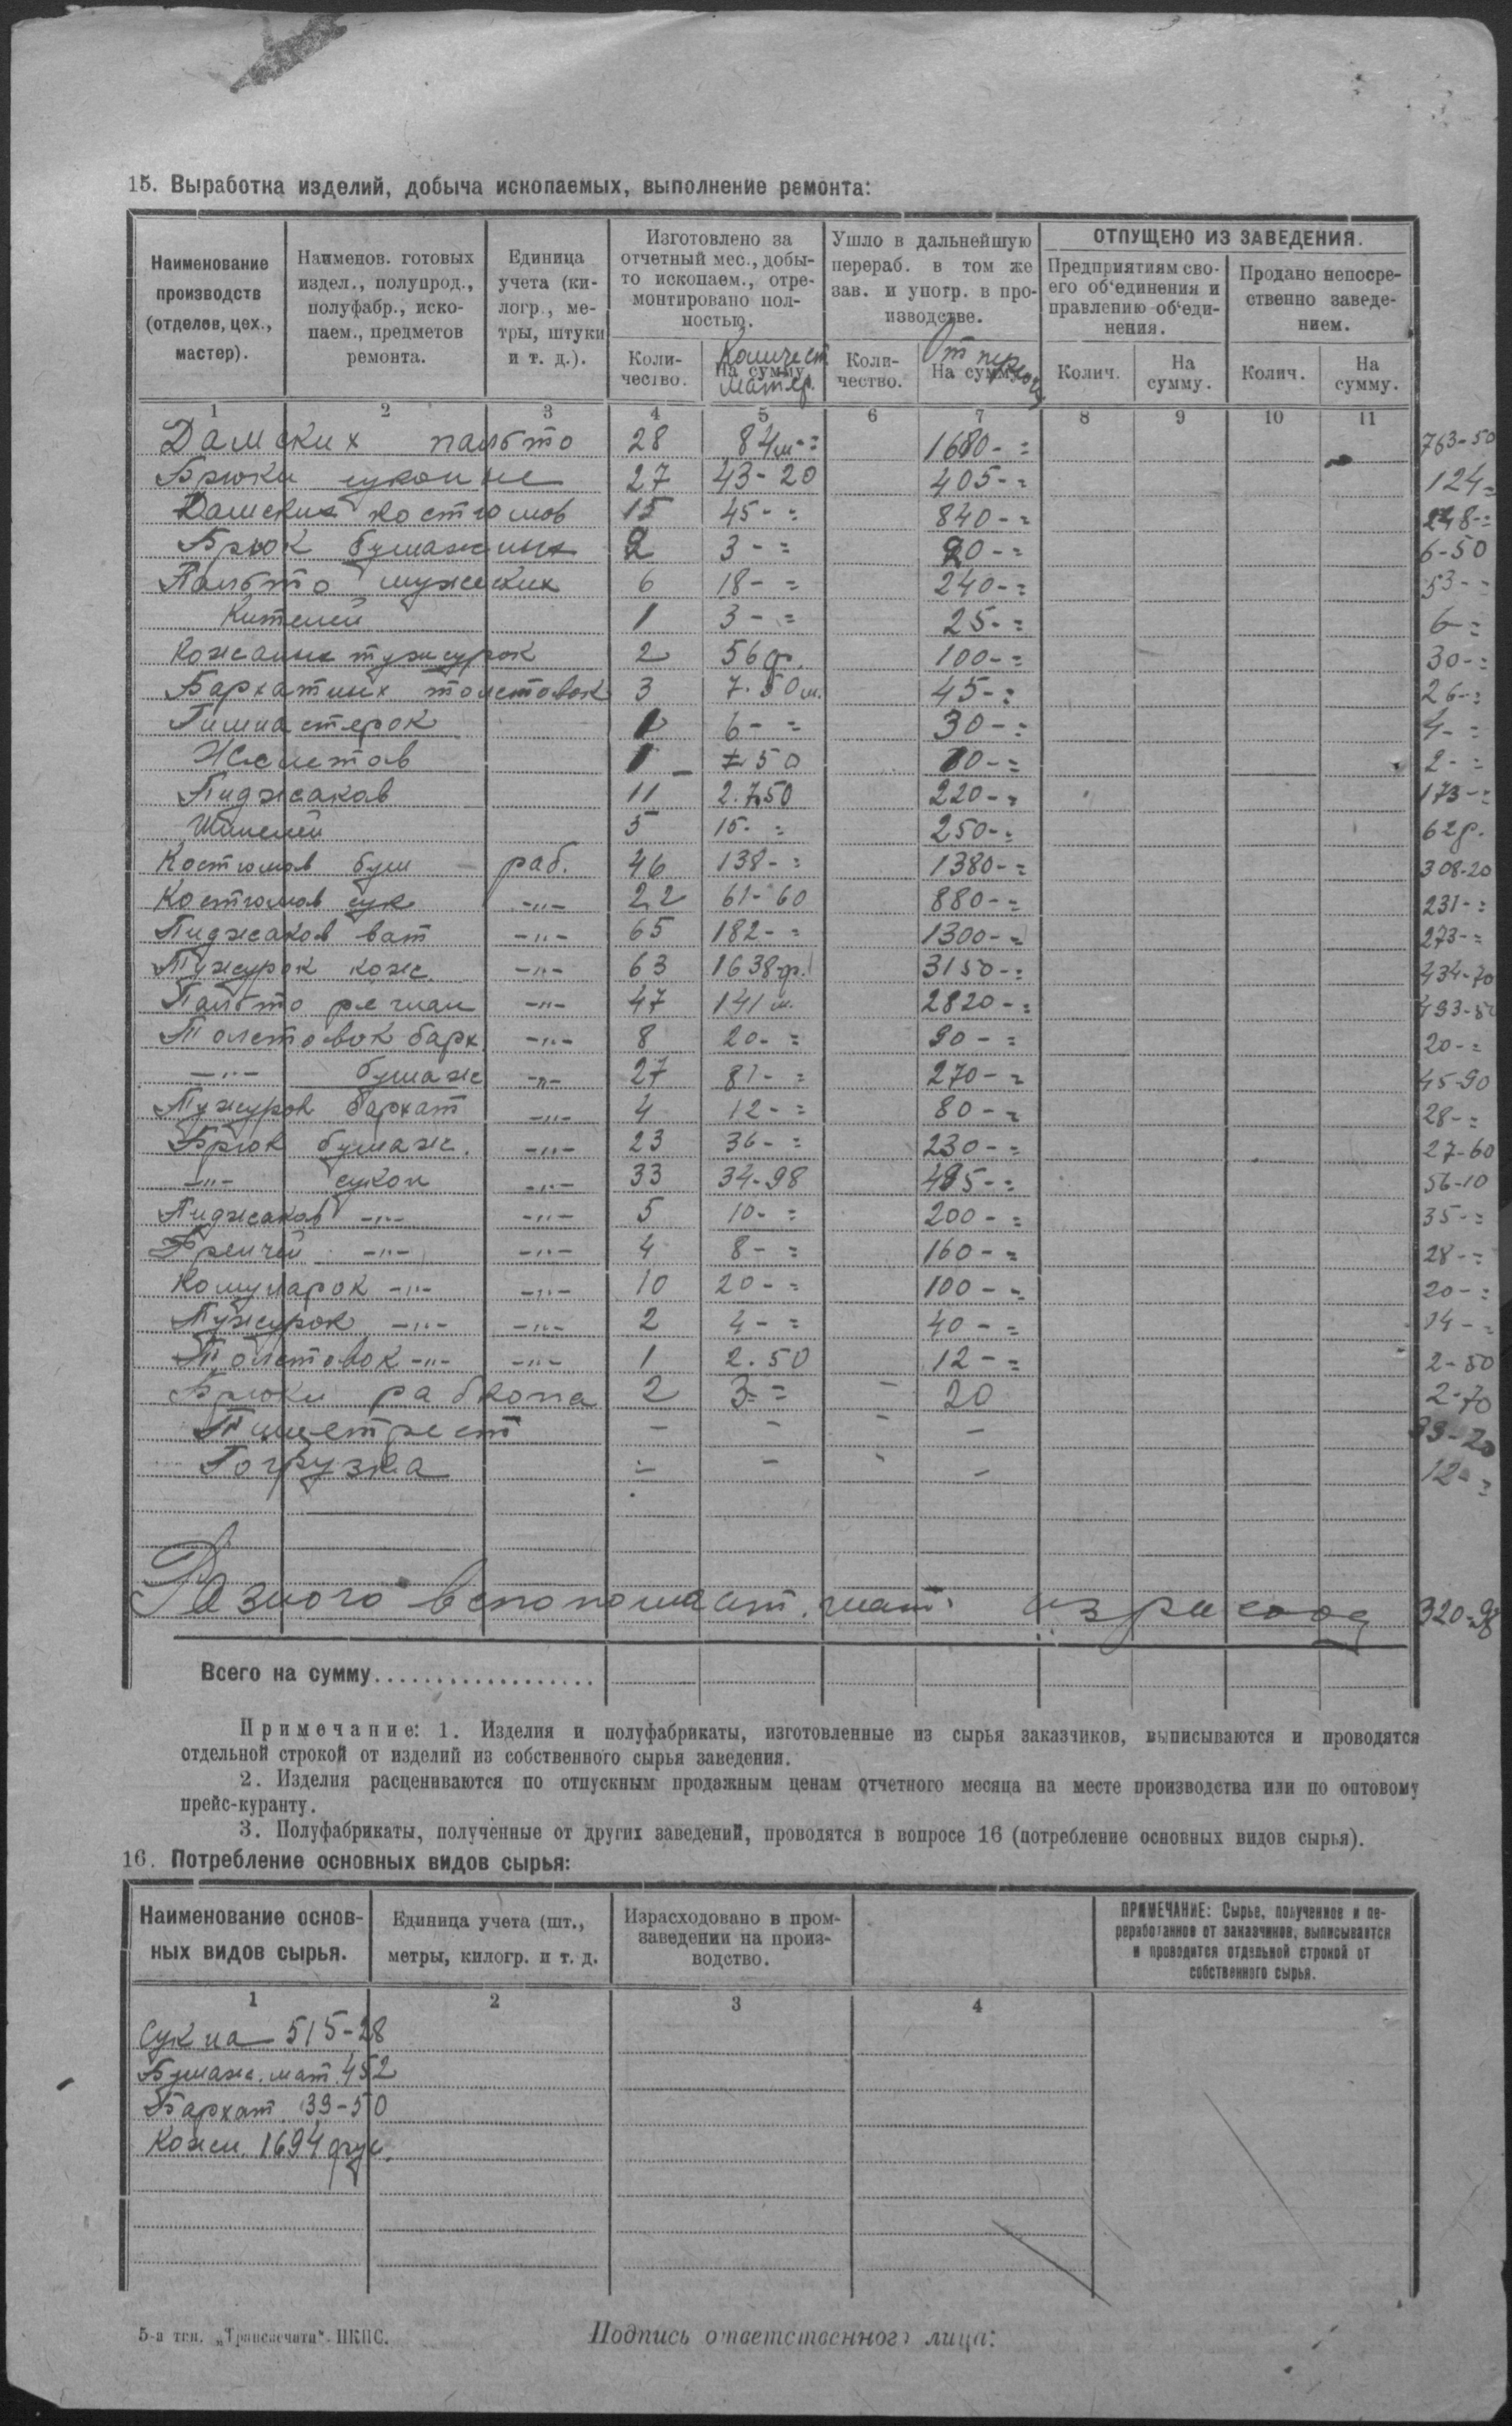 15. Выработка изделий, добыча ископаемых, выполнение ремонта:
Наименование производств (отделов, цех., мастер).
Наименов. готовых издел., полупрод., полуфабр., ископаем., предметов ремонта.
Единица учета (килогр., метры, штуки и т. д.).
Изготовлено за отчетный мес., добыто ископаем., отремонтировано полностью.
Ушло в дальнейшую перераб. в том же зав. и употр. в производстве.
ОТПУЩЕНО ИЗ ЗАВЕДЕНИЯ.
Предприятиям своего об'единения и правлению об'единения.
Продано непосредственно заведением.
Количество. На сумму Количест матер. Количество. На сумму Колич. На сумму. Колич. На сумму.
1 2 3 4 5 6 7 8 9 10 11
Дамских пальто 28 84м-= 1680-= 763-50
Брюки суконые 27 43-20 405-= 124-=
Дамских костюмов 15 45-= 840-= 248-=
Брюк бумажных 2 3-= 20-= 6-50
Пальто мужских 6 18-= 240-= 53-=
Кителей 1 3-= 25-= 6-=
Кожаных тужурок 2 56ф. 100-= 30-=
Бархатных толстовок 3 7.50м. 45-= 26-=
Гимнастерок 6-= 30-= 4-=
Жилетов 1 50 2-=
Пиджаков 11 2.750 220-= 173-=
Шинелей 5 15-= 250-= 62р.
Костюмов бум раб. 46 138-= 1380-= 308-20
Костюмов сук -"- 22 61-60 880-= 231-=
Пиджаков ват -"- 65 182-= 1300-= 273-=
Тужурок кож. -"- 63 1638ф. 3150-= 434-70
Пальто -"- 47 141м. 2820-=
Толстовок барх -"- 8 20-= 90-= 20-=
-"- бумаж -"- 27 81-= 270-= 45-90
Тужуров бархат -"- 4 12-= 80-= 28-=
Брюк бумаж. -"- 23 36-= 230-= 27-60
-"- сукон -"- 33 34-98 495-= 56-10
Пиджаков -"- -"- 5 10-= 200-= 35-=
Френчей -"- -"- 4 8-= 160-= 28-=
Комунарок -"- -"- 10 20-= 100-= 20-=
Тужурок -"- -"- 2 4-= 40-= 14-=
Толстовок -"- -"- 1 2.50 12-= 2-50
Брюки 2 3-= - 20 2-70
- - - - 99-20
Погрузка - - - - 12-=
Разного вспомогат. мат. израсход 320-98
Всего на сумму...................
Примечание: 1. Изделия и полуфабрикаты, изготовленные из сырья заказчиков, выписываются и проводятся
отдельной строкой от изделий из собственного сырья заведения.
2. Изделия расцениваются по отпускным продажным ценам отчетного месяца на месте производства или по оптовому
прейс-куранту.
3. Полуфабрикаты, полученные от других заведений, проводятся в вопросе 16 (потребление основных видов сырья).
16. Потребление основных видов сырья:
Наименование основных видов сырья.
Единица учета (шт., метры, килогр. и т. д.
Израсходовано в промзаведении на производство.
ПРИМЕЧАНИЕ: Сырье, полученное и переработанное от заказчиков, выписывается и проводится отдельной строкой от собственного сырья.
1 2 3 4
Сукна 515-28
Бумаж. мат. 452
Бархат 39-50
Кожи. 1694 фут.
5-я тип. „Транспечати“ НКПС.
Подпись ответственного лица: